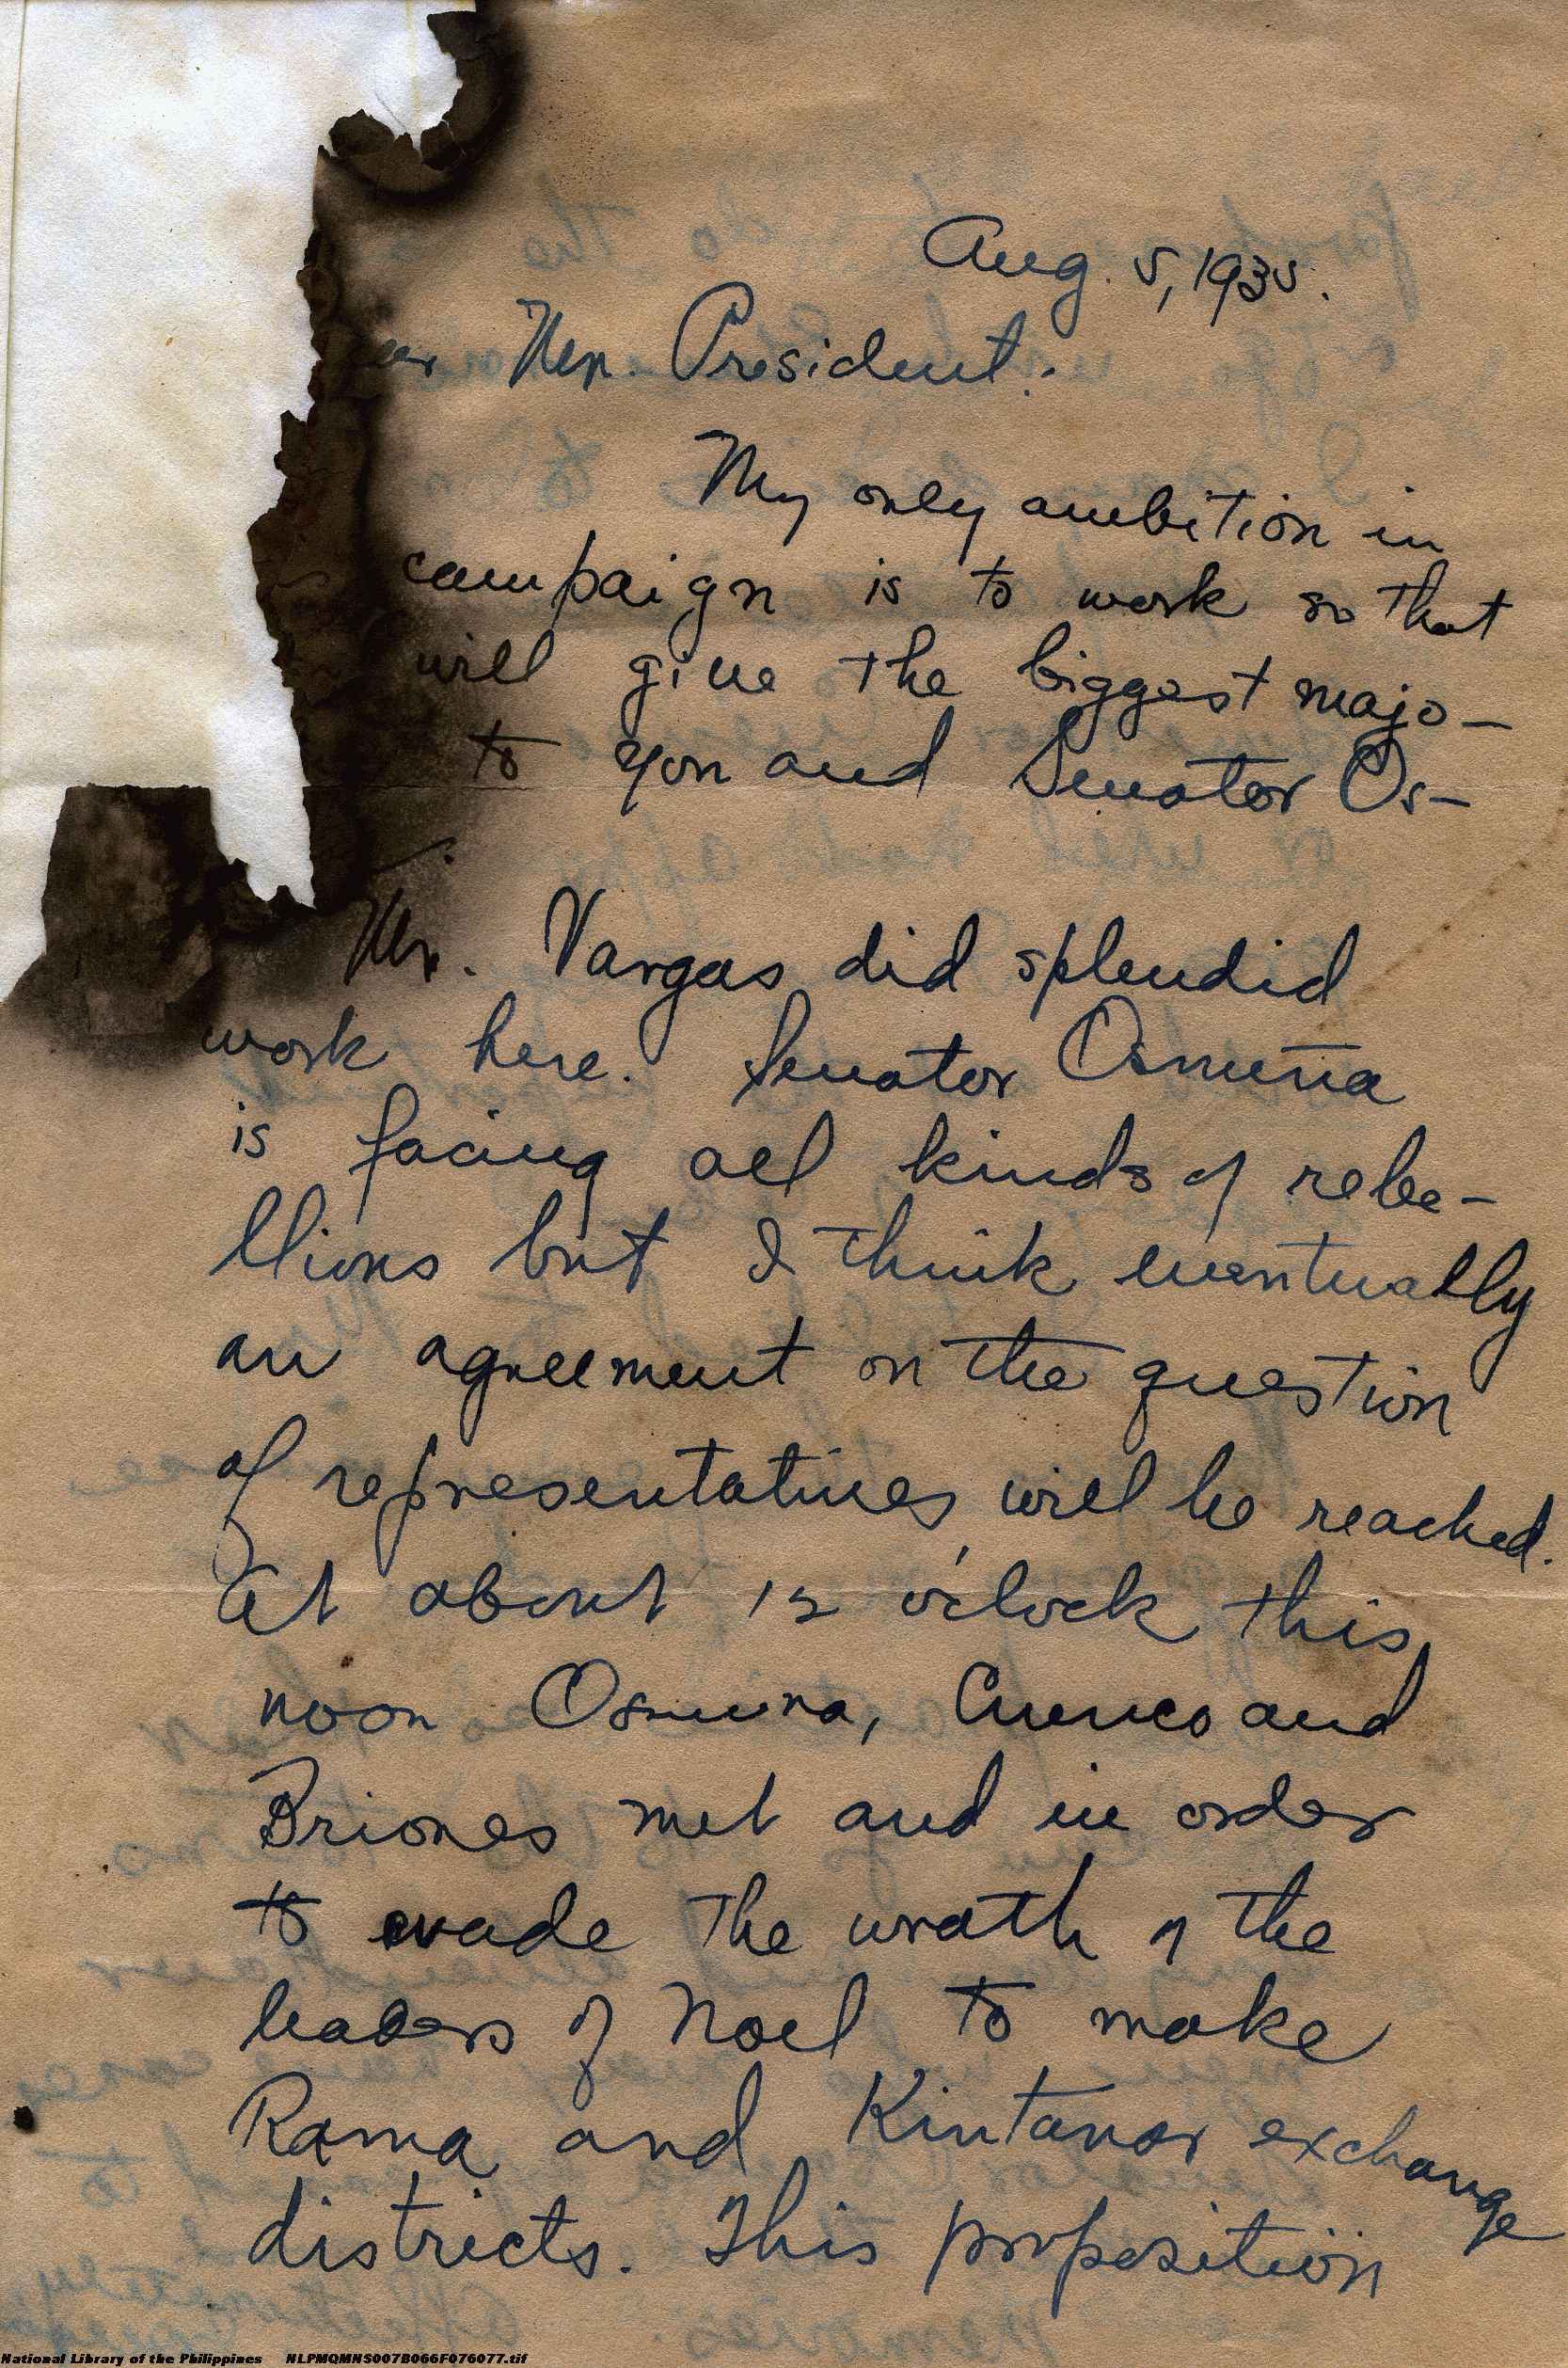 Aug. 5, 1935.
Mr. President:
My only ambition in
campaign is to work so that
will give the biggest majo-
to you and Senator Os-
Mr. Vargas did splendid
work here. Senator Osmeña
is facing all kinds of rebe-
llions but I think eventually
an agreement on the question
of representatives will be reached.
At about 12 o'clock this
noon Osmena, Cuenco and
Briones met and in order
to evade the wrath of the
leaders of Noel to make
Rama and Kintanar exchange
districts. This proposition
National Library of the Philippines NLPMQMNS007B066F076077.tif